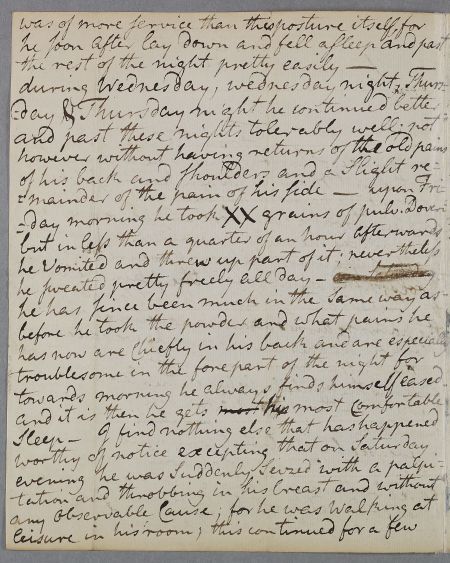 was of more service than the posture itself for
he soon after lay down and fell asleep and past
the rest of the night pretty easily —
during Wednesday, wednesday night, Thurs-
-day & Thursday night he continued better
and past these nights tolerably well; not
however without having returns of the old pains
of his back and shoulders and a slight re-
-mainder of the pain of his side — upon Fri-
-day morning he took XX grains of pulv. Doveri
but in less than a quarter of an hour afterwards
he vomited and threw up part of it; nevertheless
he sweated pretty freely all day —
he has since been much in the same way as
before he took the powder and what pains he
has now are Chiefly in his back and are especially
troublesome in the forepart of the night for
towards morning he always finds himself eased
and it is then he gets his most Comfortable
Sleep — I find nothing else that has happened
worthy of notice excepting that on Saturday
evening he was Suddenly Seized with a palpi-
-tation and throbbing in his breast and without
any observable Cause; for he was walking at
leisure in his room; this continued for a few